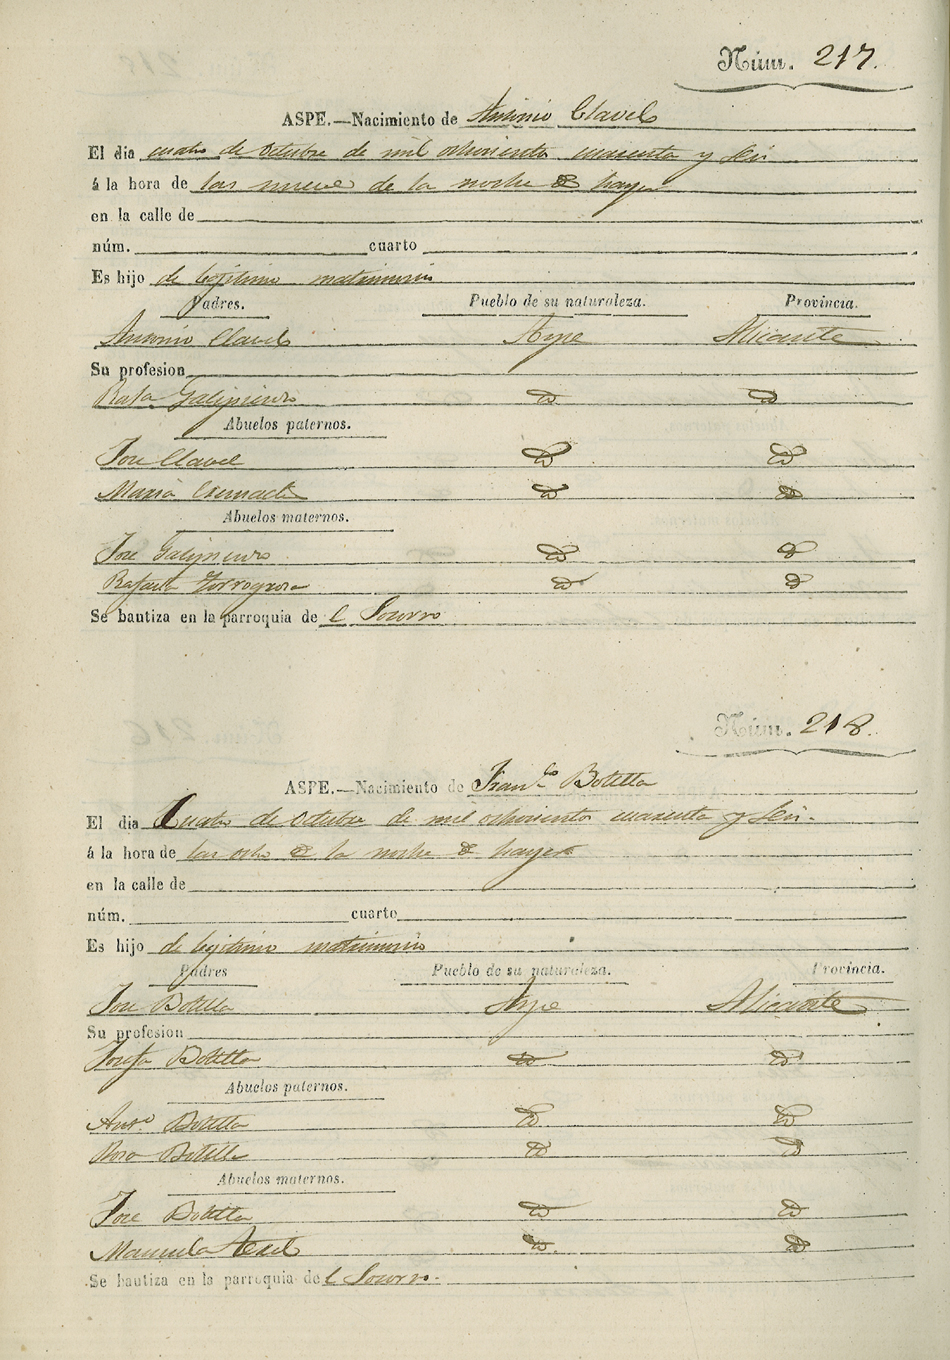 Núm. 217.
ASPE.—Nacimiento de Antonio Clavel
El dia cuatro de Octubre de mil ochocientos cuarenta y seis
á la hora de las nueve de la noche de hayer
en la calle de
núm. cuarto
Es hijo de legitimo matrimonio
Padres. Pueblo de su naturaleza. Provincia.
Antonio Clavel Aspe Alicante
Su profesion
Rafa Galipienso id id
Abuelos paternos.
Jose Clavel id id
Maria id id
Abuelos maternos.
Jose Galipienso id id
Rafaela Torregrosa id id
Se bautiza en la parroquia de l Socorro
Núm. 218.
ASPE.—Nacimiento de Franco Botella
El dia Cuatro de Octubre de mil ochocientos cuarenta y seis.
á la hora de las ocho de la noche de hayer
en la calle de
núm. cuarto
Es hijo de legitimo matrimonio
Padres Pueblo de su naturaleza. Provincia.
Jose Botella Aspe Alicante
Su profesion
Josefa Botella id id
Abuelos paternos.
Anto Botella id id
Rosa Botella id id
Abuelos maternos.
Jose Botella id id
Manuela id id
Se bautiza en la parroquia de l Socorro.